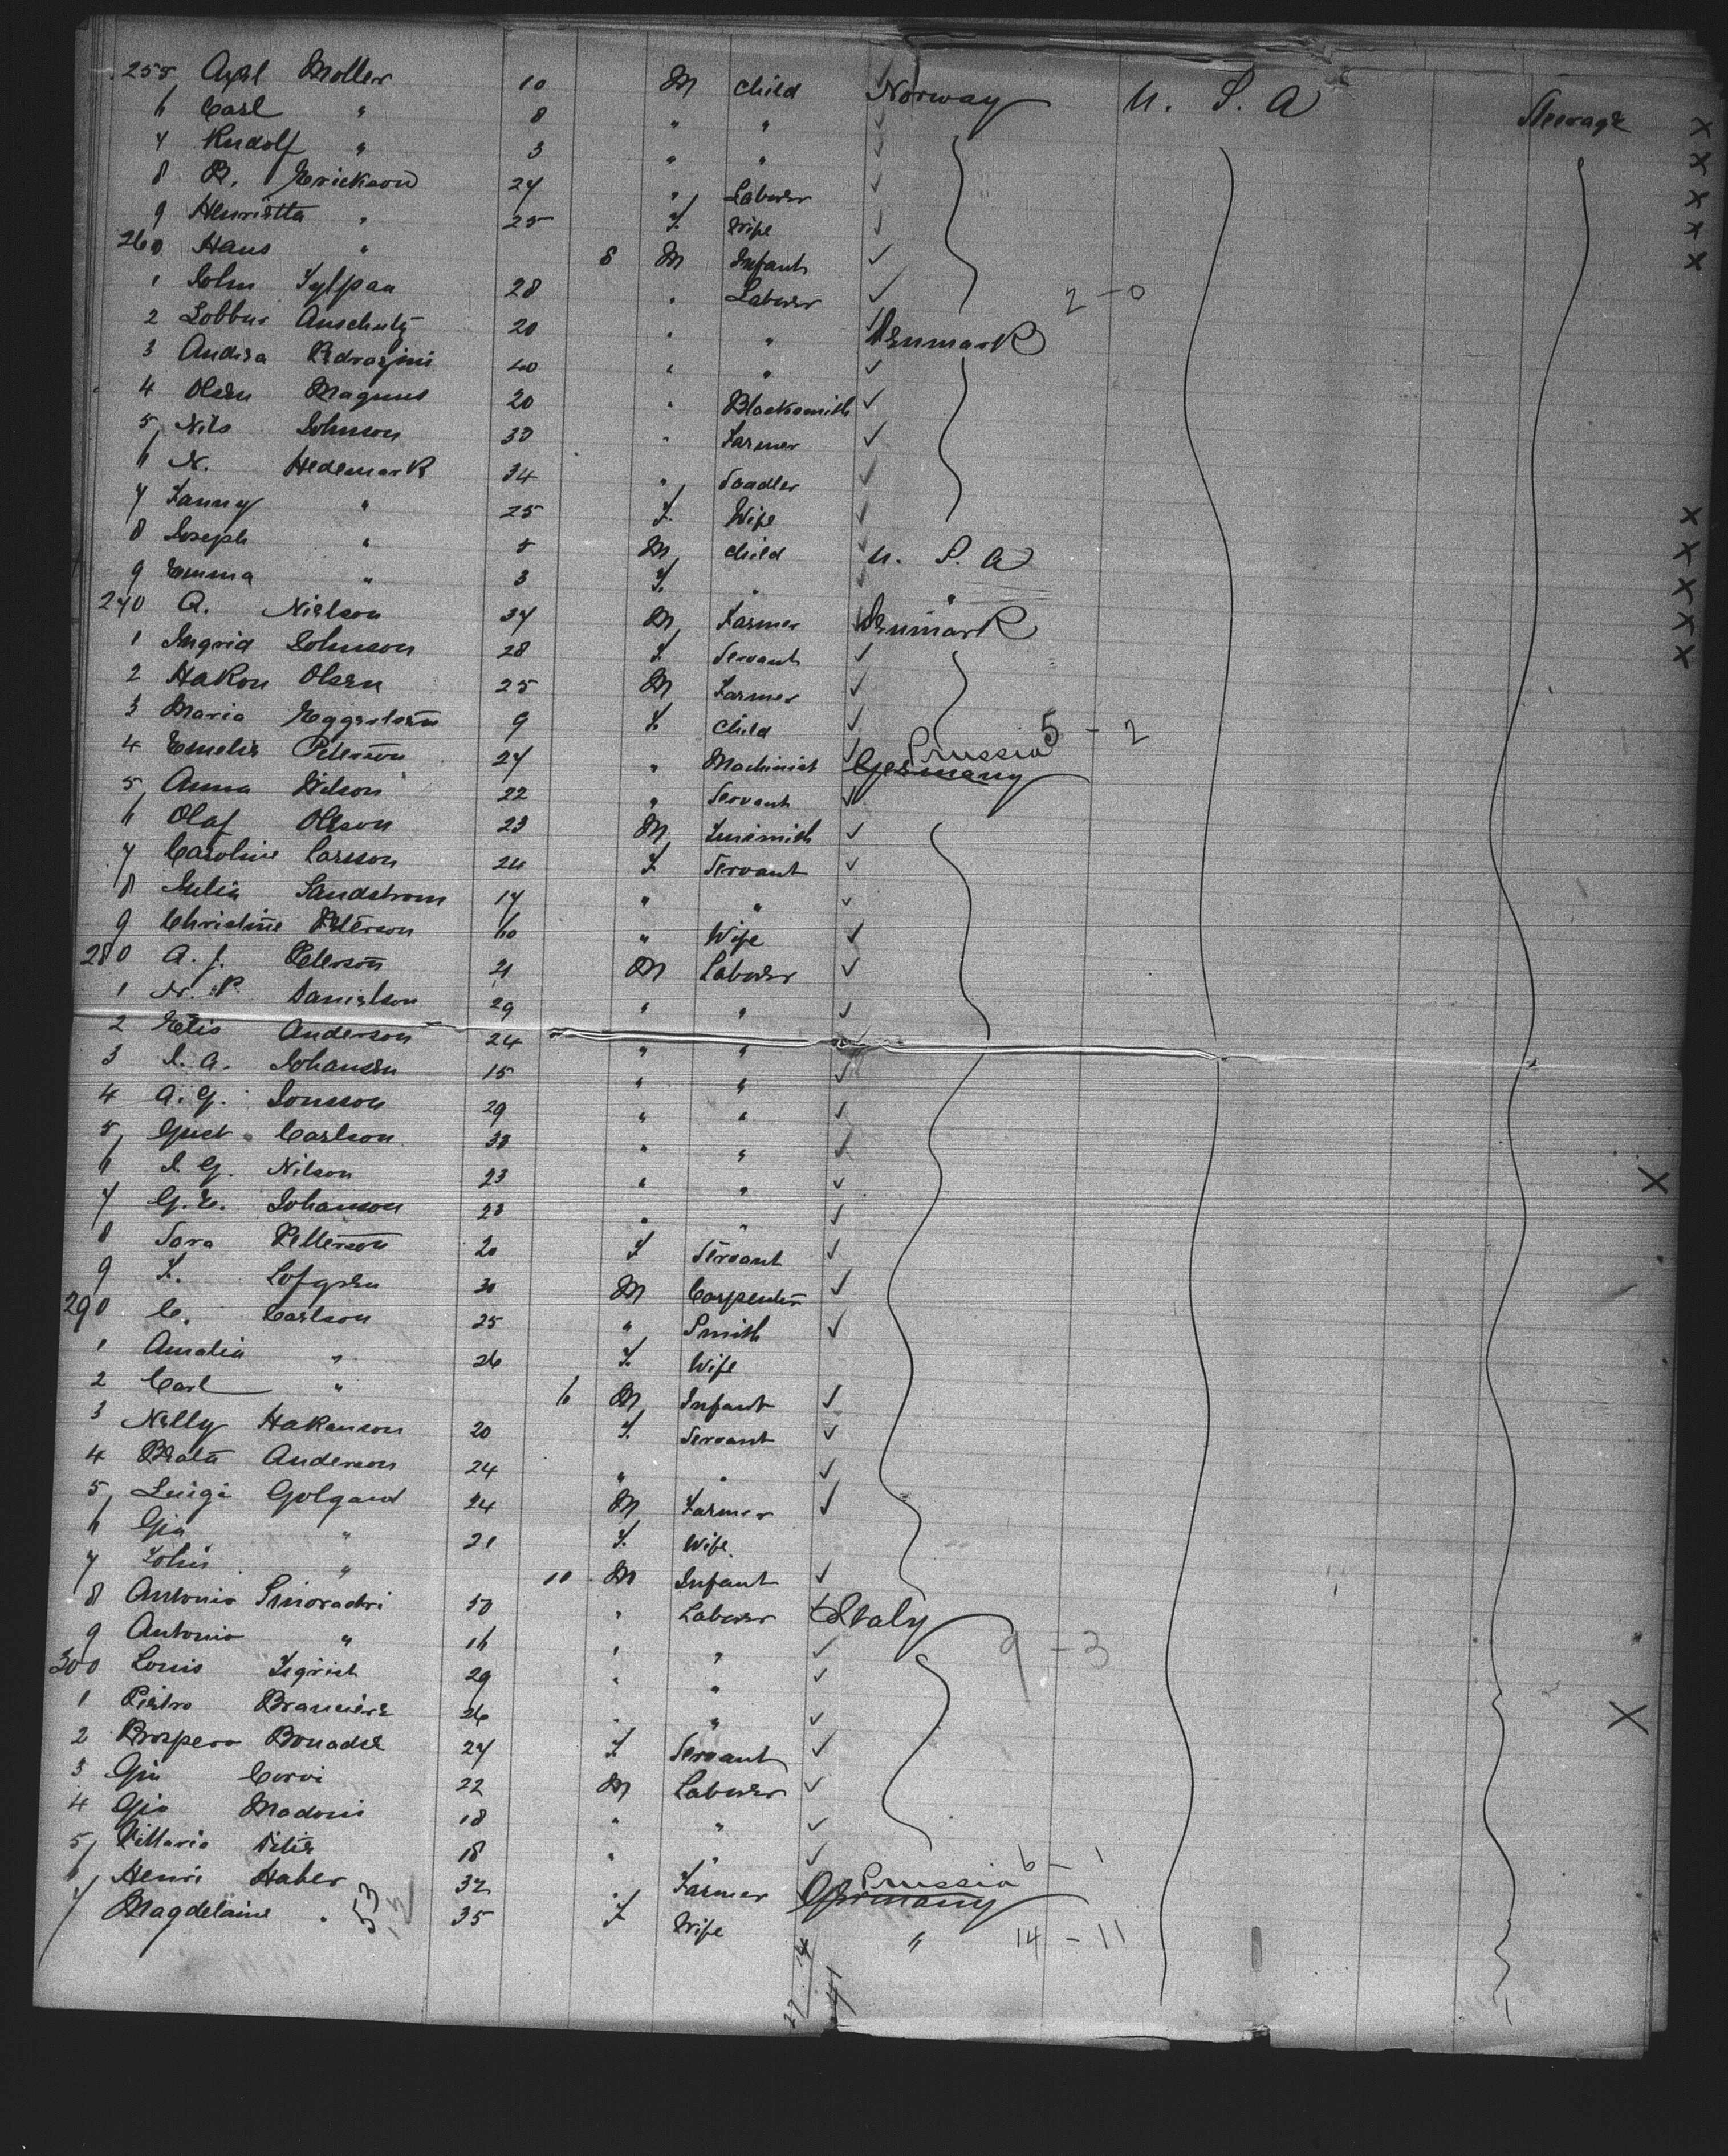 255 Axel Moller 10 M Child Norway U. S. A Steerage
6 Carl " 8 " "
7 Rudolf " 3 " "
8 B. Erickson 27 " Laborer
9 Henrietta " 25 F. Wife
260 Hans " 8 M Infant
1 John 28 " Laborer 2 - 0
2 Anschutz 20 " " Denmark
3 Andrea 40 " "
4 Olsen Magnus 20 " Blacksmith
5 Nils Johnson 30 " Farmer
6 N. Hedemark 34 " Saadler
7 Fanny " 25 F. Wife
8 Joseph " 5 M Child U. S. A
9 Emma " 3 F. " "
270 A. Nielson 37 M Farmer Denmark
1 Ingrid Johnson 28 F. Servant
2 Hakon Olsen 25 M Farmer
3 Maria 9 F. Child 5 - 2
4 Emelie Peterson 27 " Machinist Germany Prussia
5 Anna Nilson 22 " Servant
6 Olaf Olsson 23 M
7 Caroline Larsson 24 F. Servant
8 Julia Sandstrom 17 " "
9 Christine Peterson 60 " Wife
280 A. J. Peterson 21 M Laborer
1 N. P. Danielson 29 " "
2 Elis Anderson 24 " "
3 J. A. Johansen 15 " "
4 A. G. Jonsson 29 " "
5 Gust. Carlson 38 " "
6 J. G. Nilson 23 " "
7 G. E. Johanson 23 " "
8 Sara Petterson 20 F Servant
9 F. Lofgren 30 M Carpenter
290 C. Carlson 25 " Smith
1 Amalia " 26 F. Wife
2 Carl " 6 M Infant
3 Nelly Hakanson 20 F. Servant
4 Beata Anderson 24 " "
5 Luigi Golgand 24 M Farmer
6 Gia " 21 F. Wife
7 John " 10 M Infant
8 Antonio 50 " Laborer Italy
9 Antonio " 16 " " 9 - 3
300 Louis 29 " "
1 Pietro 26 " "
2 Prospero Bonadie 27 F Servant
3 Gia Corvi 22 M Laborer
4 Gio Madoni 18 " "
5 Vittorio 18 " " 6 - 1
6 Henri Haber 32 " Farmer Germany Prussia
7 Magdelaine " 53 35 F Wife " 14 - 11